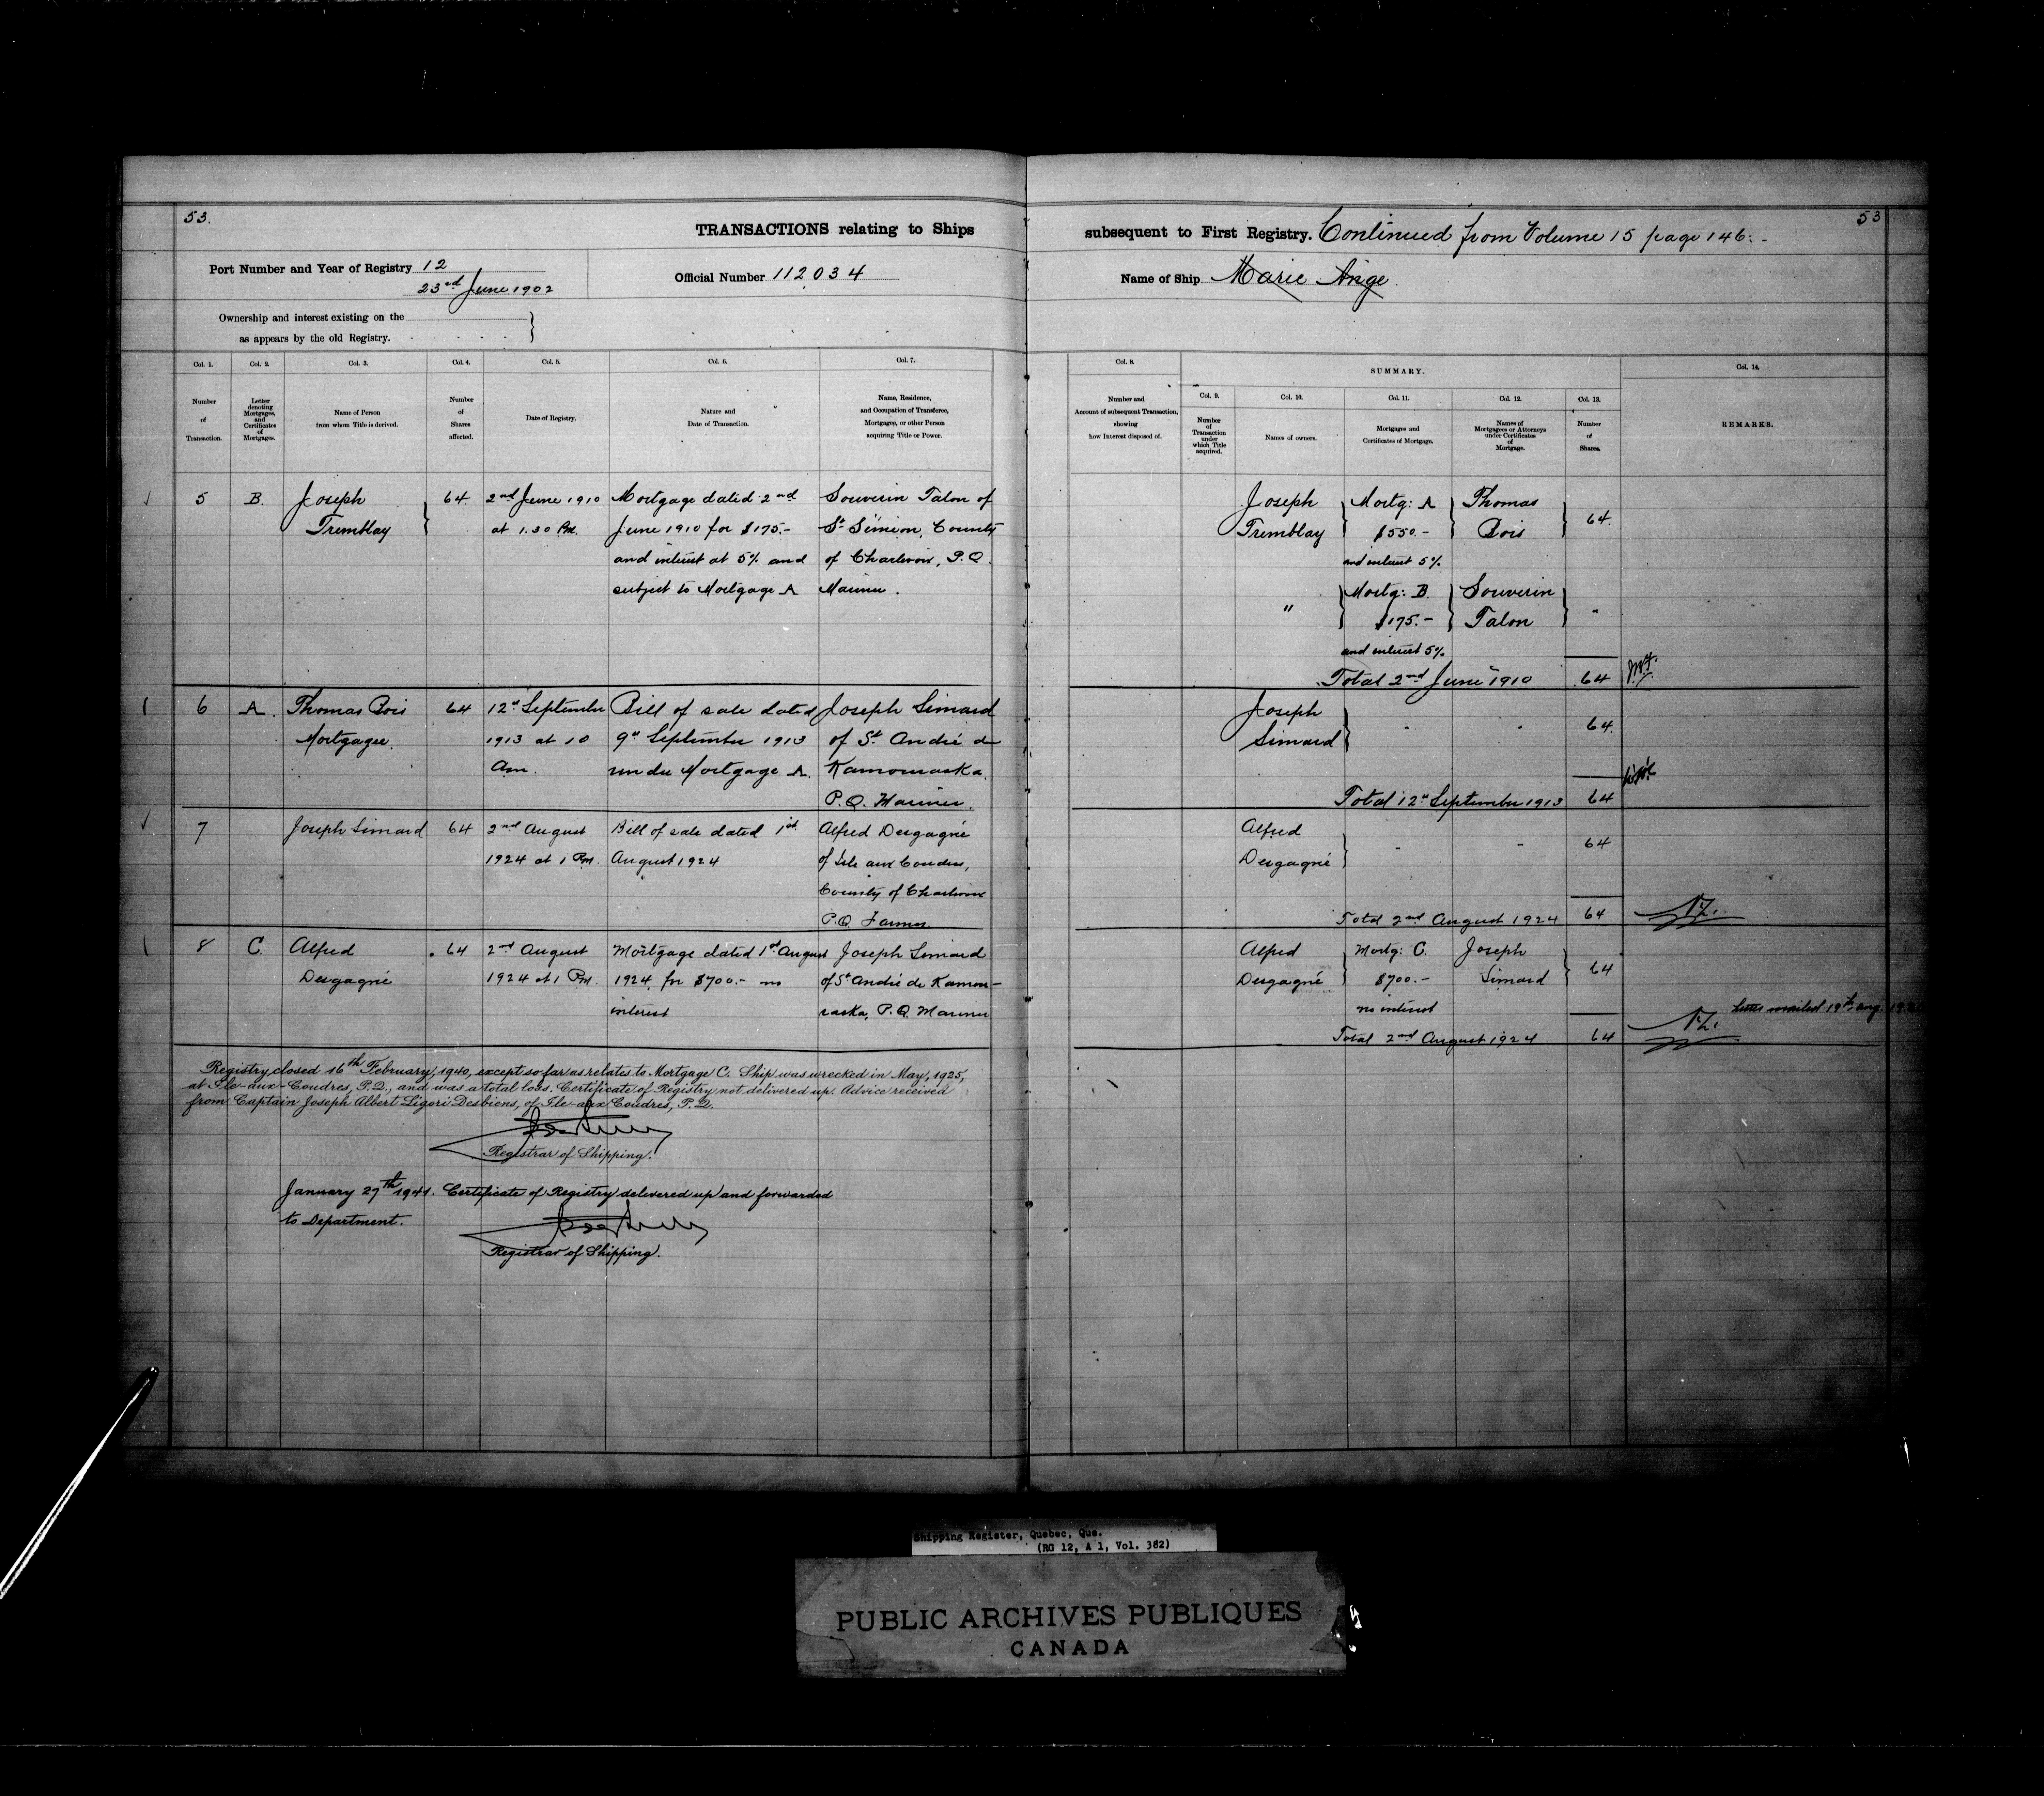 53.
53
TRANSACTIONS relating to Ships subsequent to First Registry. Continued from Volume 15 page 146:-
Port Number and Year of Registry 12
23rd June 1902
Official Number 112034
Name of Ship Marie Ange
Ownership and interest existing on the
as appears by the old Registry.
Col. 1.
Number
of
Transaction.
Col. 2.
Letter
denoting
Mortgages,
and
Certificates
of
Mortgages.
Col. 3.
Name of Person
from whom Title is derived.
Col. 4.
Number
of
Shares
affected.
Col. 5.
Date of Registry.
Col. 6.
Nature and
Date of Transaction.
Col. 7.
Name, Residence,
and Occupation of Transferee,
Mortgagee, or other Person
acquiring Title or Power.
Col. 8.
Number and
Account of subsequent Transaction,
showing
how Interest disposed of.
SUMMARY.
Col. 9.
Number
of
Transaction
under
which Title
acquired.
Col. 10.
Names of owners.
Col. 11.
Mortgages and
Certificates of Mortgage.
Col. 12.
Names of
Mortgagees or Attorneys
under Certificates
of
Mortgage.
Col. 13.
Number
of
Shares.
Col. 14.
REMARKS.
5
B.
Joseph
Tremblay
64
2nd June 1910
at 1.30 P.M.
Mortgage dated 2nd
June 1910 for $175.-
and interest at 5% and
subject to Mortgage A
Souverin Talon of
St Siméon, County
of Charlevoix, P.Q.
Mariner.
Joseph
Tremblay
Mortg: A
$550.-
and interest 5%
Thomas
Bois
64.
"
Mortg: B.
$175.-
and interest 5%
Souverin
Talon
"
Total 2nd June 1910
64
6
A.
Thomas Bois
Mortgagee.
64
12th September
1913 at 10
Am.
Bill of sale dated
9th September 1913
under Mortgage A.
Joseph Simard
of St. André de
Kamouraska.
P.Q. Mariner.
Joseph
Simard
-
-
64.
Total 12th September 1913
64
7
Joseph Simard
64
2nd August
1924 at 1 P.M.
Bill of sale dated 1st
August 1924
Alfred Desgagné
of Isle aux Coudres,
County of Charlevoix
P.Q. Farmer.
Alfred
Desgagné
-
-
64
Total 2nd August 1924
64
8
C.
Alfred
Desgagné
64
2nd August
1924 at 1 P.M.
Mortgage dated 1st August
1924, for $700.- no
interest
Joseph Simard
of St André de Kamou-
raska, P.Q. Mariner
Alfred
Desgagné
Mortg: C.
$700.-
no interest
Joseph
Simard
64
Total 2nd August 1924
64
Letter mailed 19th Aug.
Registry closed 16th February, 1940, except so far as relates to Mortgage C. Ship was wrecked in May, 1925,
at Ile-aux-Coudres, P.Q., and was a total loss. Certificate of Registry not delivered up. Advice received
from Captain Joseph Albert Ligori Desbiens, of Ile-aux-Coudres, P.Q.
Registrar of Shipping.
January 27th 1941. Certificate of Registry delivered up and forwarded
to Department.
Registrar of Shipping.
Shipping Register, Quebec, Que.
(RG 12, A 1, Vol. 382)
PUBLIC ARCHIVES PUBLIQUES
CANADA